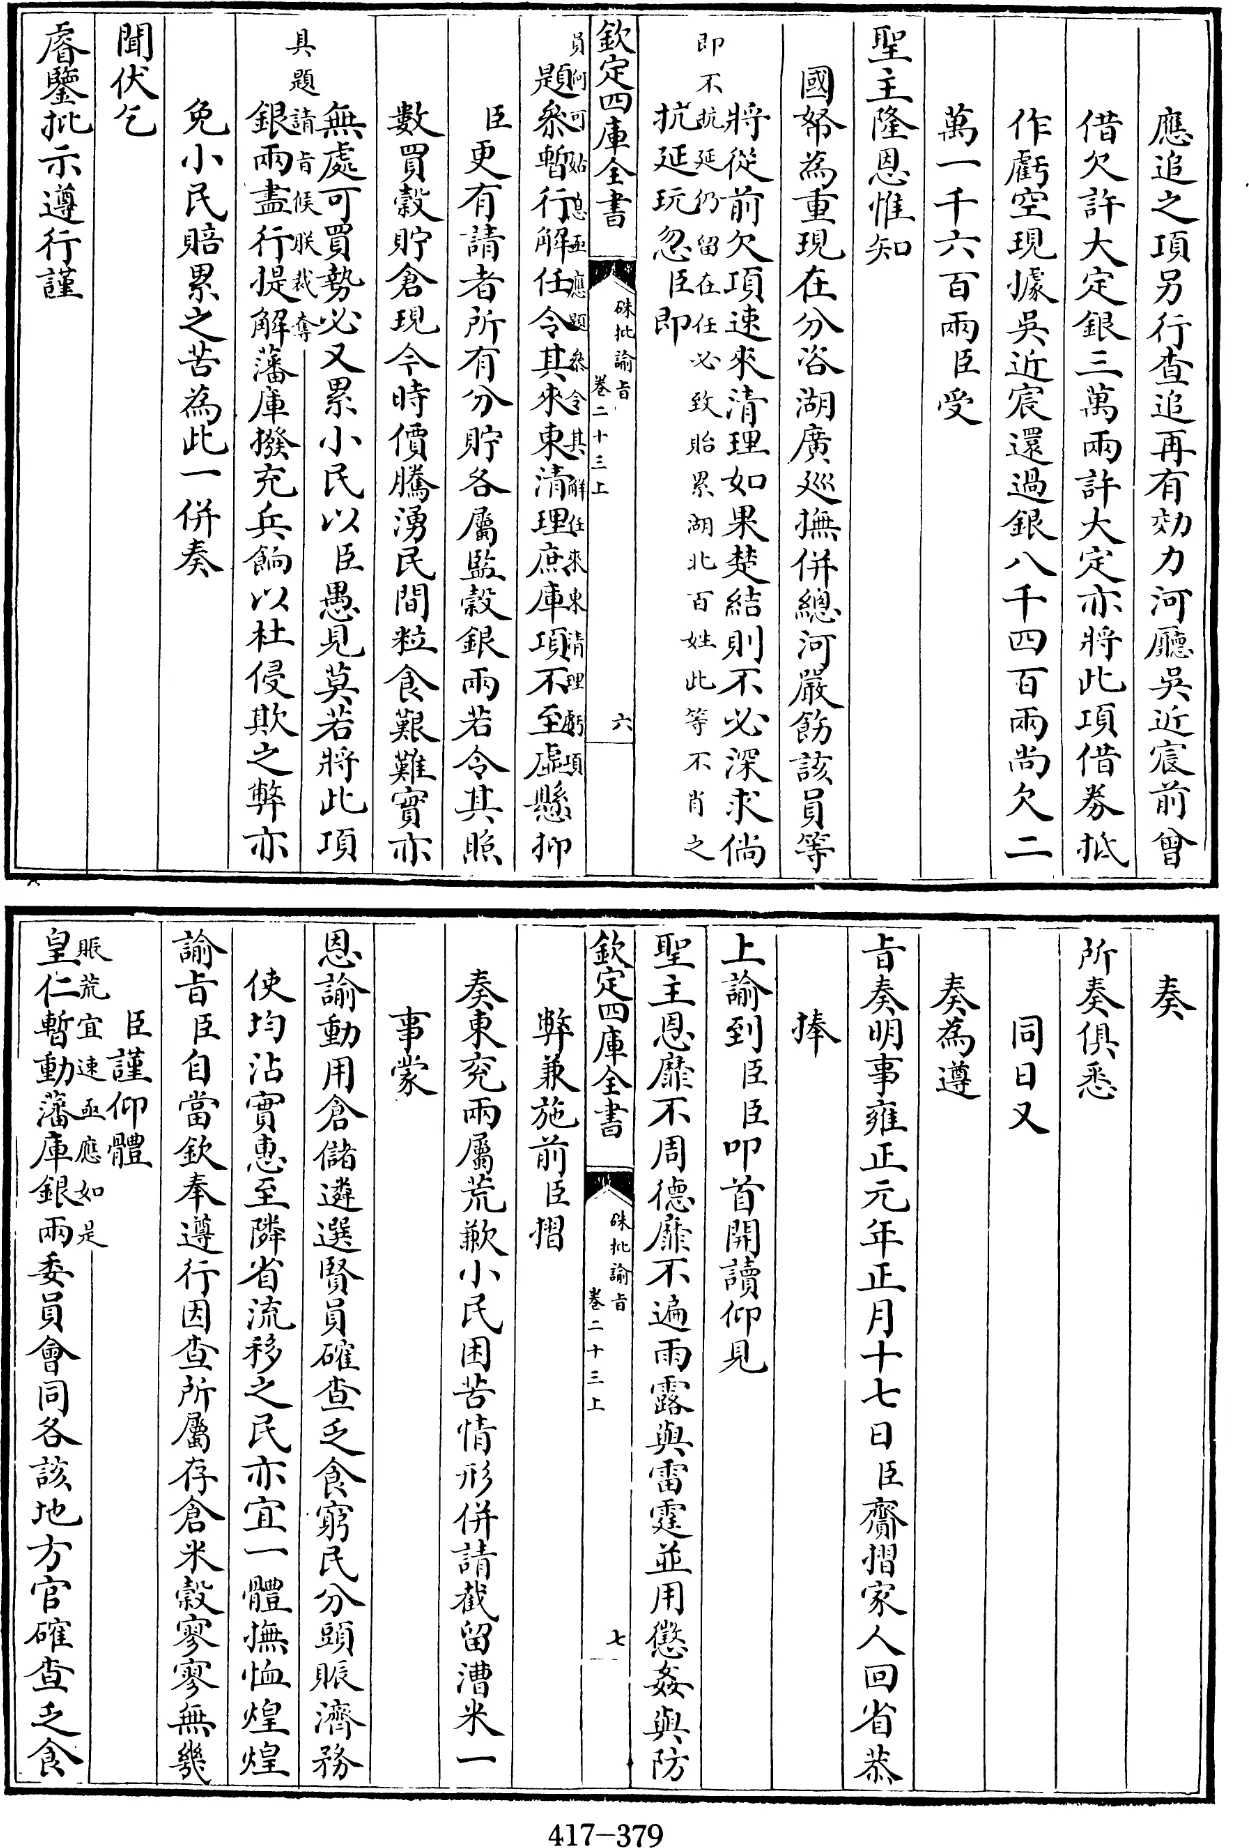 應追之項另行查追再有効力河廳吳近宸前曾
借欠許大定銀三萬兩許大定亦將此項借券抵
作虧空現據吳近宸還過銀八千四百兩尚欠二
萬一千六百兩臣受
聖主隆恩惟知
國帑為重現在分咨湖廣廵撫併總河嚴飭該員等
將從前欠項速來清理如果楚結則不必深求倘
即不抗延仍留在任必致貽累湖北百姓此等不肖之
抗延玩忽臣即
欽定四庫全書
硃批諭旨
卷二十三上
六
員何可姑息亟應題叅令其解任來東清理虧項
題叅暫行解任令其來東清理庶庫項不至虛懸抑
臣更有請者所有分貯各屬監榖銀兩若令其照
數買榖貯倉現今時價騰湧民間粒食艱難實亦
無處可買勢必又累小民以臣愚見莫若將此項
具題請旨候朕裁奪
銀兩盡行提解藩庫撥充兵餉以杜侵欺之弊亦
免小民賠累之苦為此一併奏
聞伏乞
睿鑒批示遵行謹
奏
所奏俱悉
同日又
奏為遵
旨奏明事雍正元年正月十七日臣齎摺家人回省恭
捧
上諭到臣臣叩首開讀仰見
聖主恩靡不周德靡不遍雨露與雷霆並用懲姦與防
欽定四庫全書
硃批諭旨
卷二十三上
七
弊兼施前臣摺
奏東兖兩屬荒歉小民困苦情形併請截留漕米一
事蒙
恩諭動用倉儲遴選賢員確查乏食窮民分頭賑濟務
使均沾實惠至隣省流移之民亦宜一體撫恤煌煌
諭旨臣自當欽奉遵行因查所屬存倉米榖寥寥無幾
臣謹仰體
賑荒宜速亟應如是
皇仁暫動藩庫銀兩委員會同各該地方官確查乏食
417-379